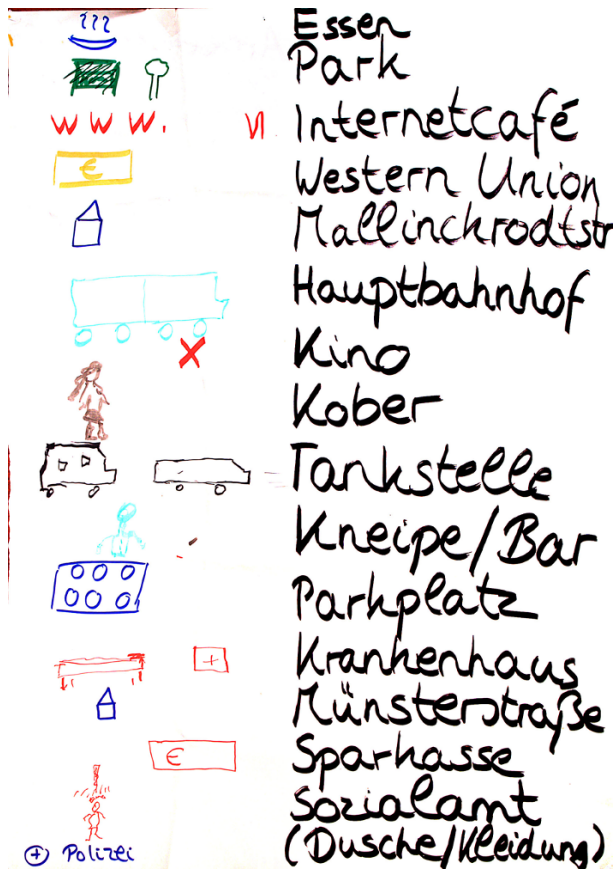 Essen
Park
WWW. Internetcafé
€ Western Union
Mallinckrodtstr
Hauptbahnhof
Kino
Kober
Tankstelle
Kneipe/Bar
Parkplatz
Krankenhaus
Münsterstraße
€ Sparkasse
Sozialamt
+ Polizei (Dusche/Kleidung)